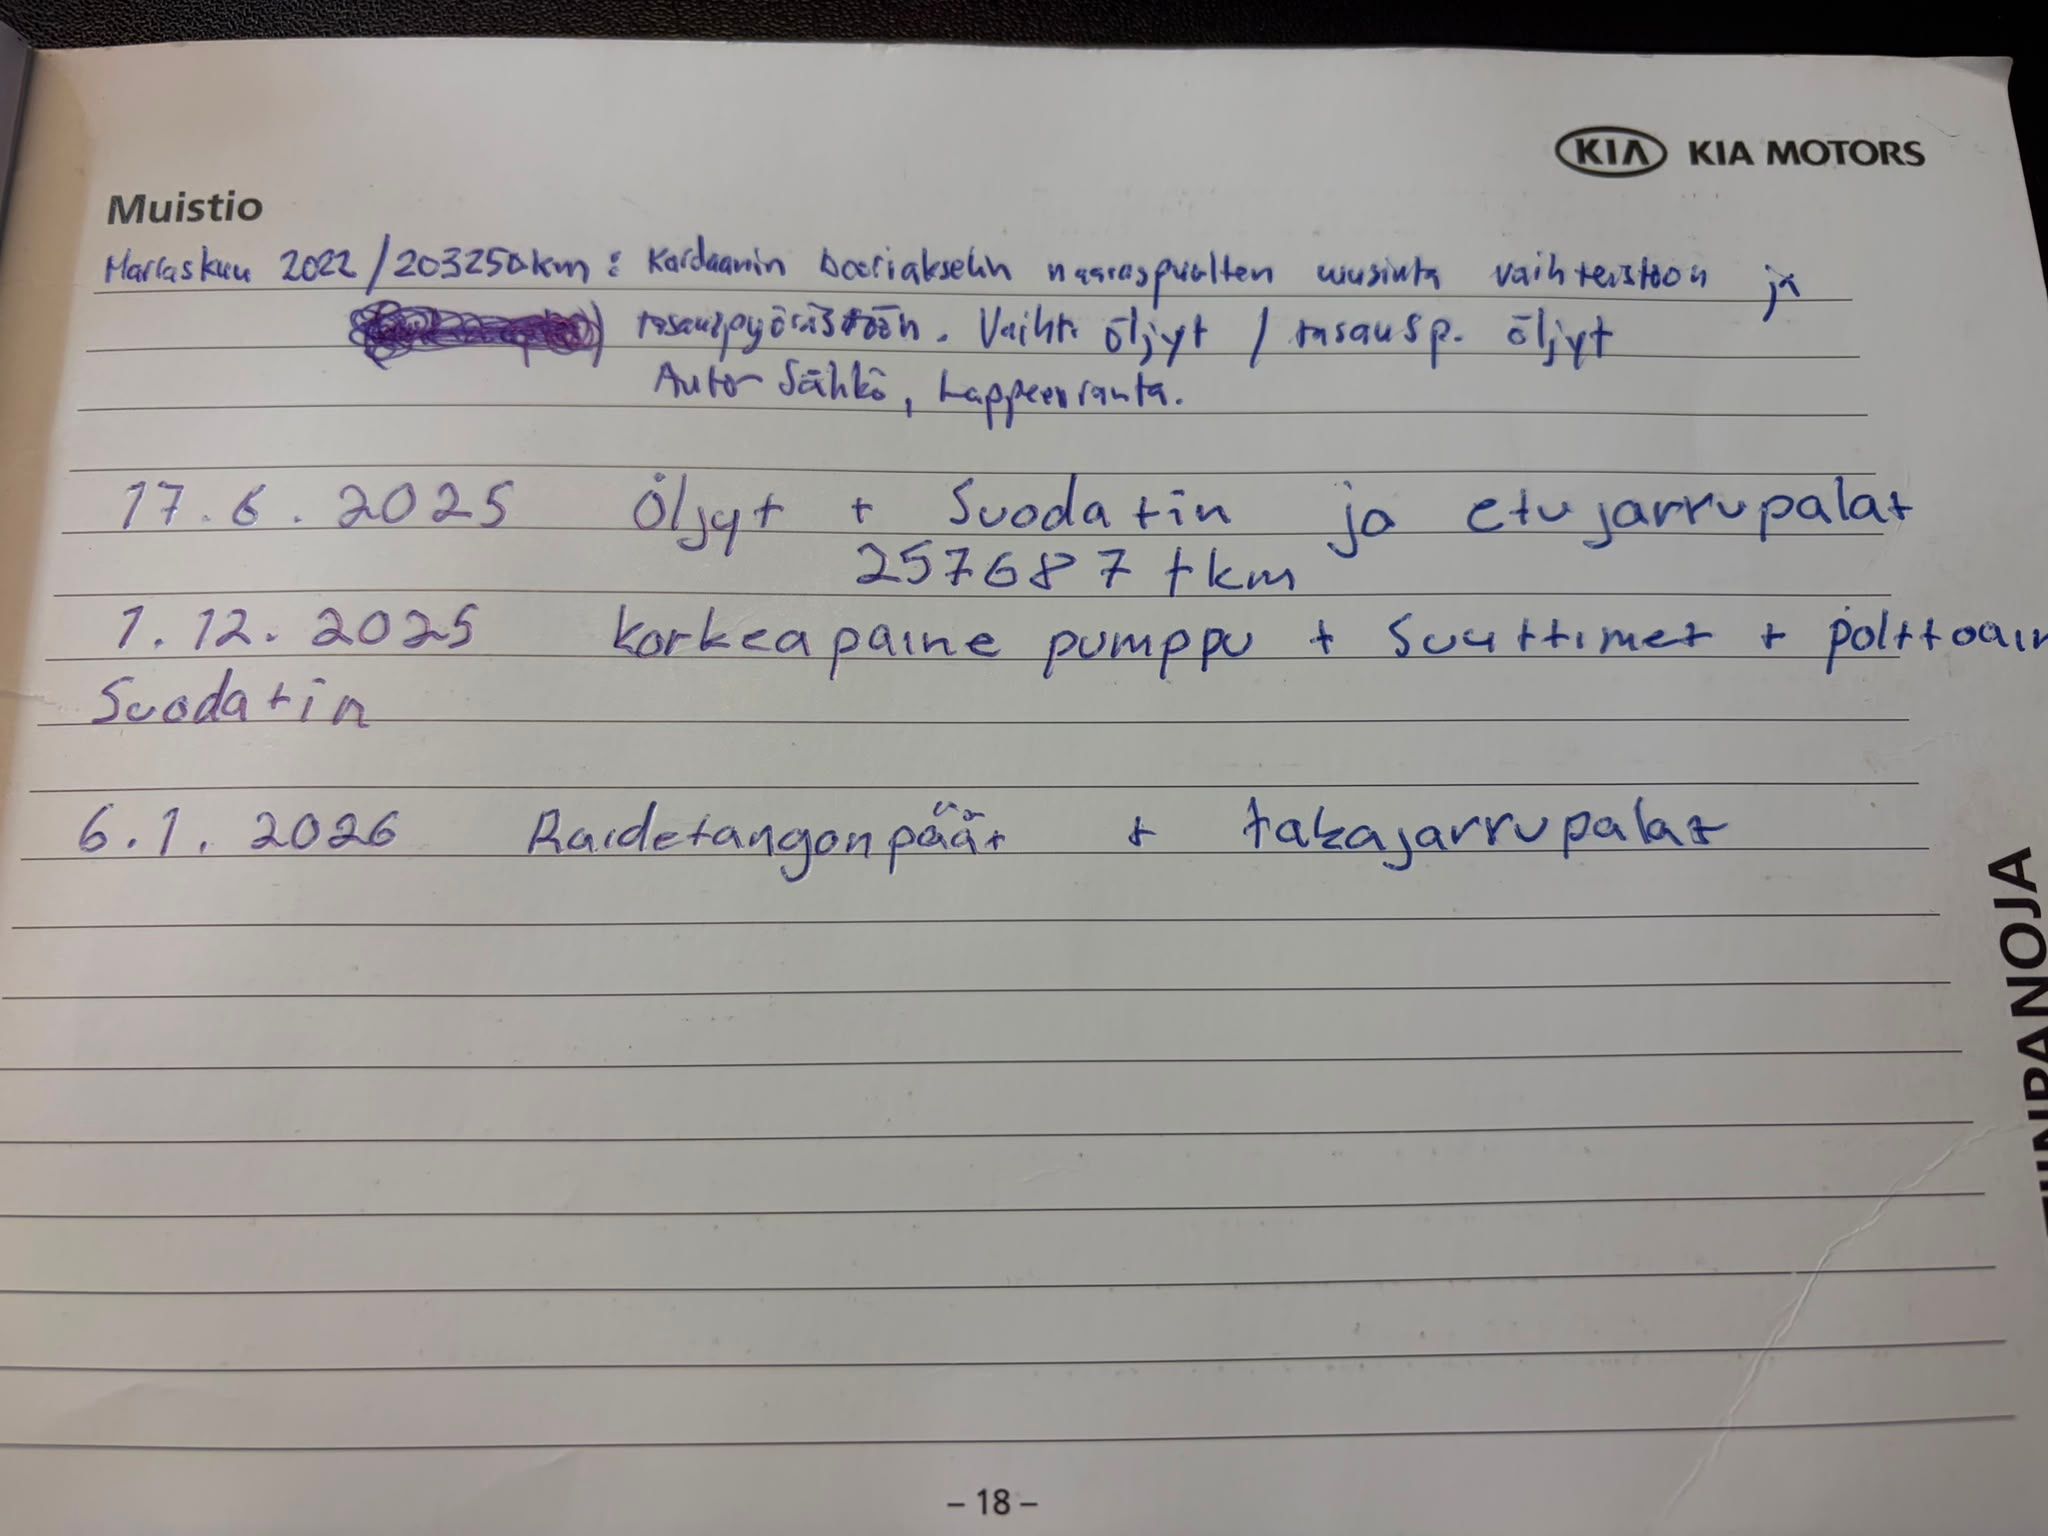 KIA KIA MOTORS
Muistio
Marraskuu 2022 / 203250km: Kardaanin booriakselin naaraspuolten uusinta vaihteistoon ja
tasauspyörästöön. Vaiht. öljyt / tasausp. öljyt
Auto-Sähkö, Lappeenranta.
17.6.2025 Öljyt + Suodatin ja etujarrupalat
257687 tkm
1.12.2025 korkeapaine pumppu + Suuttimet + polttoain
Suodatin
6.1.2026 Raidetangonpäät + takajarrupalat
- 18 -